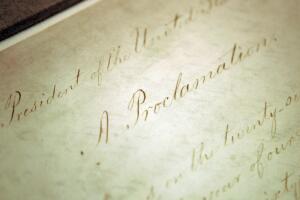 President of the United Sta
A Proclamation.
d on the twenty-se
year of our